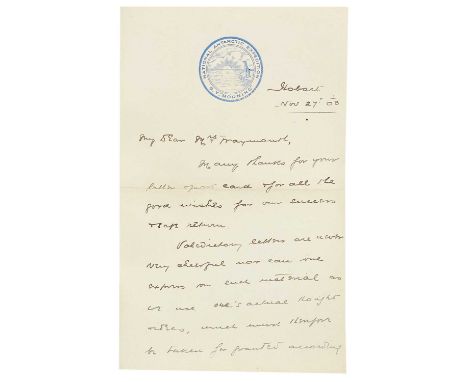 NATIONAL ANTARCTIC EXPEDITION
S.Y. "MORNING"
Hobart
Nov 27th 03
My Dear Mrs
Many thanks for your
letter post card & for all the
good wishes for our success
& safe return
Valedictory letters are never
very cheerful nor can one
express on such material as
we use one's actual thought
, which must therefore
be taken for granted according